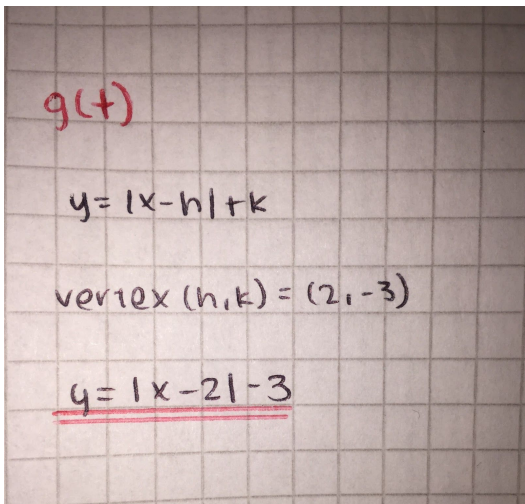 g(t)
y = |x-h|+k
vertex (h,k) = (2,-3)
y = |x-2|-3